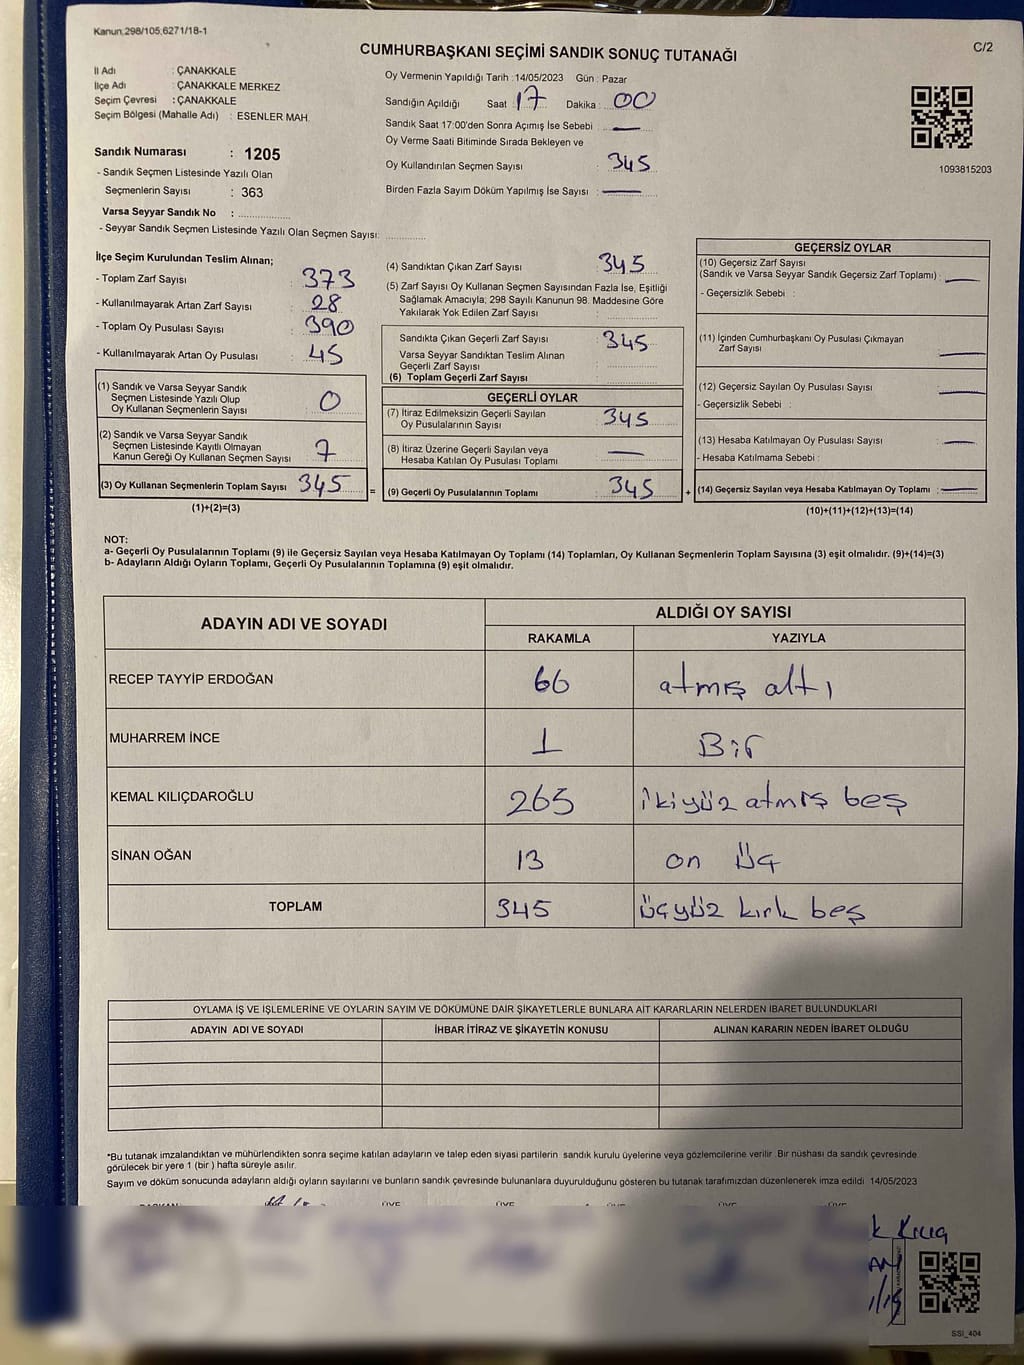 Kanun,298/105,6271/18-1
C/2
CUMHURBAŞKANI SEÇİMİ SANDIK SONUÇ TUTANAĞI
İl Adı : ÇANAKKALE
İlçe Adı : ÇANAKKALE MERKEZ
Seçim Çevresi : ÇANAKKALE
Seçim Bölgesi (Mahalle Adı) : ESENLER MAH.
Sandık Numarası : 1205
- Sandık Seçmen Listesinde Yazılı Olan
Seçmenlerin Sayısı : 363
Varsa Seyyar Sandık No :
- Seyyar Sandık Seçmen Listesinde Yazılı Olan Seçmen Sayısı:
Oy Vermenin Yapıldığı Tarih :14/05/2023 Gün : Pazar
Sandığın Açıldığı Saat : 17 Dakika : 00
Sandık Saat 17:00'den Sonra Açımış İse Sebebi : —
Oy Verme Saati Bitiminde Sırada Bekleyen ve
Oy Kullandırılan Seçmen Sayısı : 345
Birden Fazla Sayım Döküm Yapılmış İse Sayısı : —
1093815203
İlçe Seçim Kurulundan Teslim Alınan;
- Toplam Zarf Sayısı : 373
- Kullanılmayarak Artan Zarf Sayısı : 28
- Toplam Oy Pusulası Sayısı : 390
- Kullanılmayarak Artan Oy Pusulası : 45
(1) Sandık ve Varsa Seyyar Sandık
Seçmen Listesinde Yazılı Olup
Oy Kullanan Seçmenlerin Sayısı : 0
(2) Sandık ve Varsa Seyyar Sandık
Seçmen Listesinde Kayıtlı Olmayan
Kanun Gereği Oy Kullanan Seçmen Sayısı : 7
(3) Oy Kullanan Seçmenlerin Toplam Sayısı : 345
(1)+(2)=(3)
=
(4) Sandıktan Çıkan Zarf Sayısı : 345
(5) Zarf Sayısı Oy Kullanan Seçmen Sayısından Fazla İse, Eşitliği
Sağlamak Amacıyla; 298 Sayılı Kanunun 98. Maddesine Göre
Yakılarak Yok Edilen Zarf Sayısı :
Sandıkta Çıkan Geçerli Zarf Sayısı : 345
Varsa Seyyar Sandıktan Teslim Alınan
Geçerli Zarf Sayısı :
(6) Toplam Geçerli Zarf Sayısı :
GEÇERLİ OYLAR
(7) İtiraz Edilmeksizin Geçerli Sayılan
Oy Pusulalarının Sayısı : 345
(8) İtiraz Üzerine Geçerli Sayılan veya
Hesaba Katılan Oy Pusulası Toplamı : —
(9) Geçerli Oy Pusulalarının Toplamı : 345
+
GEÇERSİZ OYLAR
(10) Geçersiz Zarf Sayısı
(Sandık ve Varsa Seyyar Sandık Geçersiz Zarf Toplamı) : —
- Geçersizlik Sebebi :
(11) İçinden Cumhurbaşkanı Oy Pusulası Çıkmayan
Zarf Sayısı : —
(12) Geçersiz Sayılan Oy Pusulası Sayısı : —
- Geçersizlik Sebebi :
(13) Hesaba Katılmayan Oy Pusulası Sayısı : —
- Hesaba Katılmama Sebebi :
(14) Geçersiz Sayılan veya Hesaba Katılmayan Oy Toplamı : —
(10)+(11)+(12)+(13)=(14)
NOT:
a- Geçerli Oy Pusulalarının Toplamı (9) ile Geçersiz Sayılan veya Hesaba Katılmayan Oy Toplamı (14) Toplamları, Oy Kullanan Seçmenlerin Toplam Sayısına (3) eşit olmalıdır. (9)+(14)=(3)
b- Adayların Aldığı Oyların Toplamı, Geçerli Oy Pusulalarının Toplamına (9) eşit olmalıdır.
ADAYIN ADI VE SOYADI ALDIĞI OY SAYISI
RAKAMLA YAZIYLA
RECEP TAYYİP ERDOĞAN 66 atmış altı
MUHARREM İNCE 1 Bir
KEMAL KILIÇDAROĞLU 265 ikiyüz atmış beş
SİNAN OĞAN 13 on üç
TOPLAM 345 üçyüz kırk beş
OYLAMA İŞ VE İŞLEMLERİNE VE OYLARIN SAYIM VE DÖKÜMÜNE DAİR ŞİKAYETLERLE BUNLARA AİT KARARLARIN NELERDEN İBARET BULUNDUKLARI
ADAYIN ADI VE SOYADI İHBAR İTİRAZ VE ŞİKAYETİN KONUSU ALINAN KARARIN NEDEN İBARET OLDUĞU
*Bu tutanak imzalandıktan ve mühürlendikten sonra seçime katılan adayların ve talep eden siyasi partilerin sandık kurulu üyelerine veya gözlemcilerine verilir. Bir nüshası da sandık çevresinde
görülecek bir yere 1 (bir) hafta süreyle asılır.
Sayım ve döküm sonucunda adayların aldığı oyların sayılarını ve bunların sandık çevresinde bulunanlara duyurulduğunu gösteren bu tutanak tarafımızdan düzenlenerek imza edildi 14/05/2023
BAŞKAN ÜYE ÜYE ÜYE ÜYE ÜYE
SSI_404